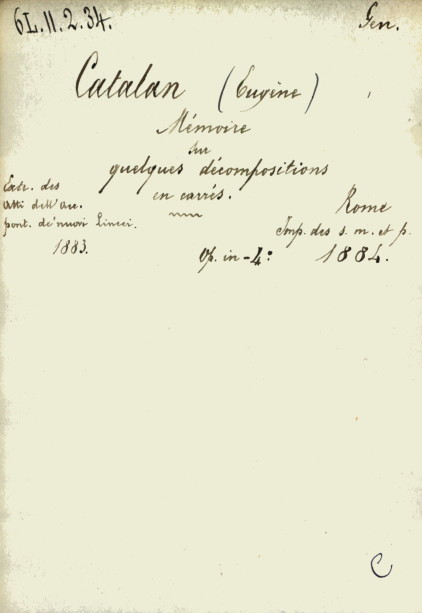 6L.11.2.34.
Gen.
Catalan (Eugène)
Mémoire
sur
quelques décompositions
en carrés.
Extr. des
Atti dell'Acc.
pont. de'nuovi Lincei.
1883.
Rome
Imp. des s. m. et p.
Op. in-4:
1884.
C